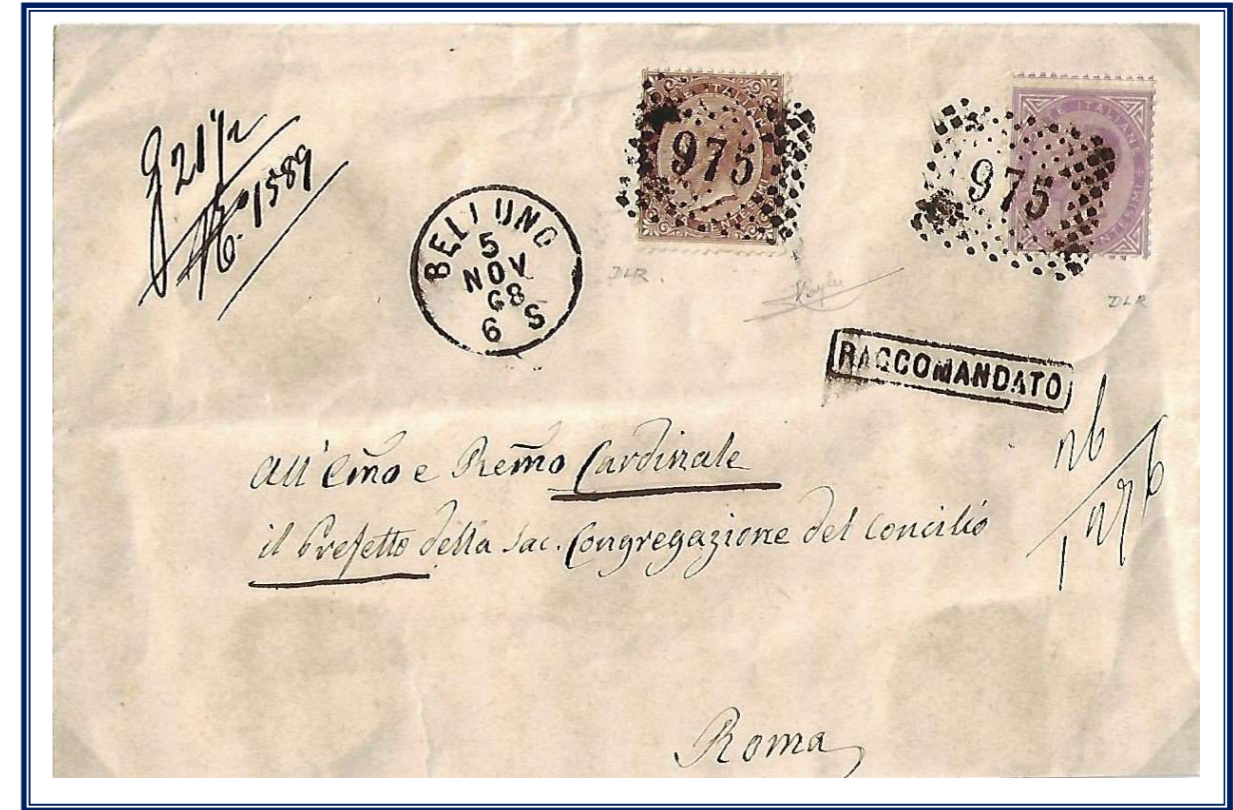 g 21 1/2
No. 1589
975
975
BELLUNO
5
NOV
68
6 S
DLR.
DLR
RACCOMANDATO
All' Emo e Remo Cardinale
il Prefetto della Sac. Congregazione del Concilio
Roma